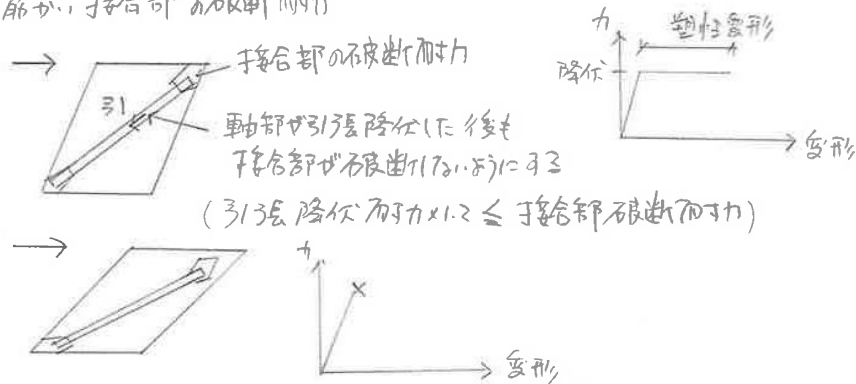 筋かい接合部の破断耐力
接合部の破断耐力
引
軸部が引張降伏した後も
接合部が破断しないようにする
(引張降伏耐力×1.2 ≦ 接合部破断耐力)
力
塑性変形
降伏
変形
力
変形